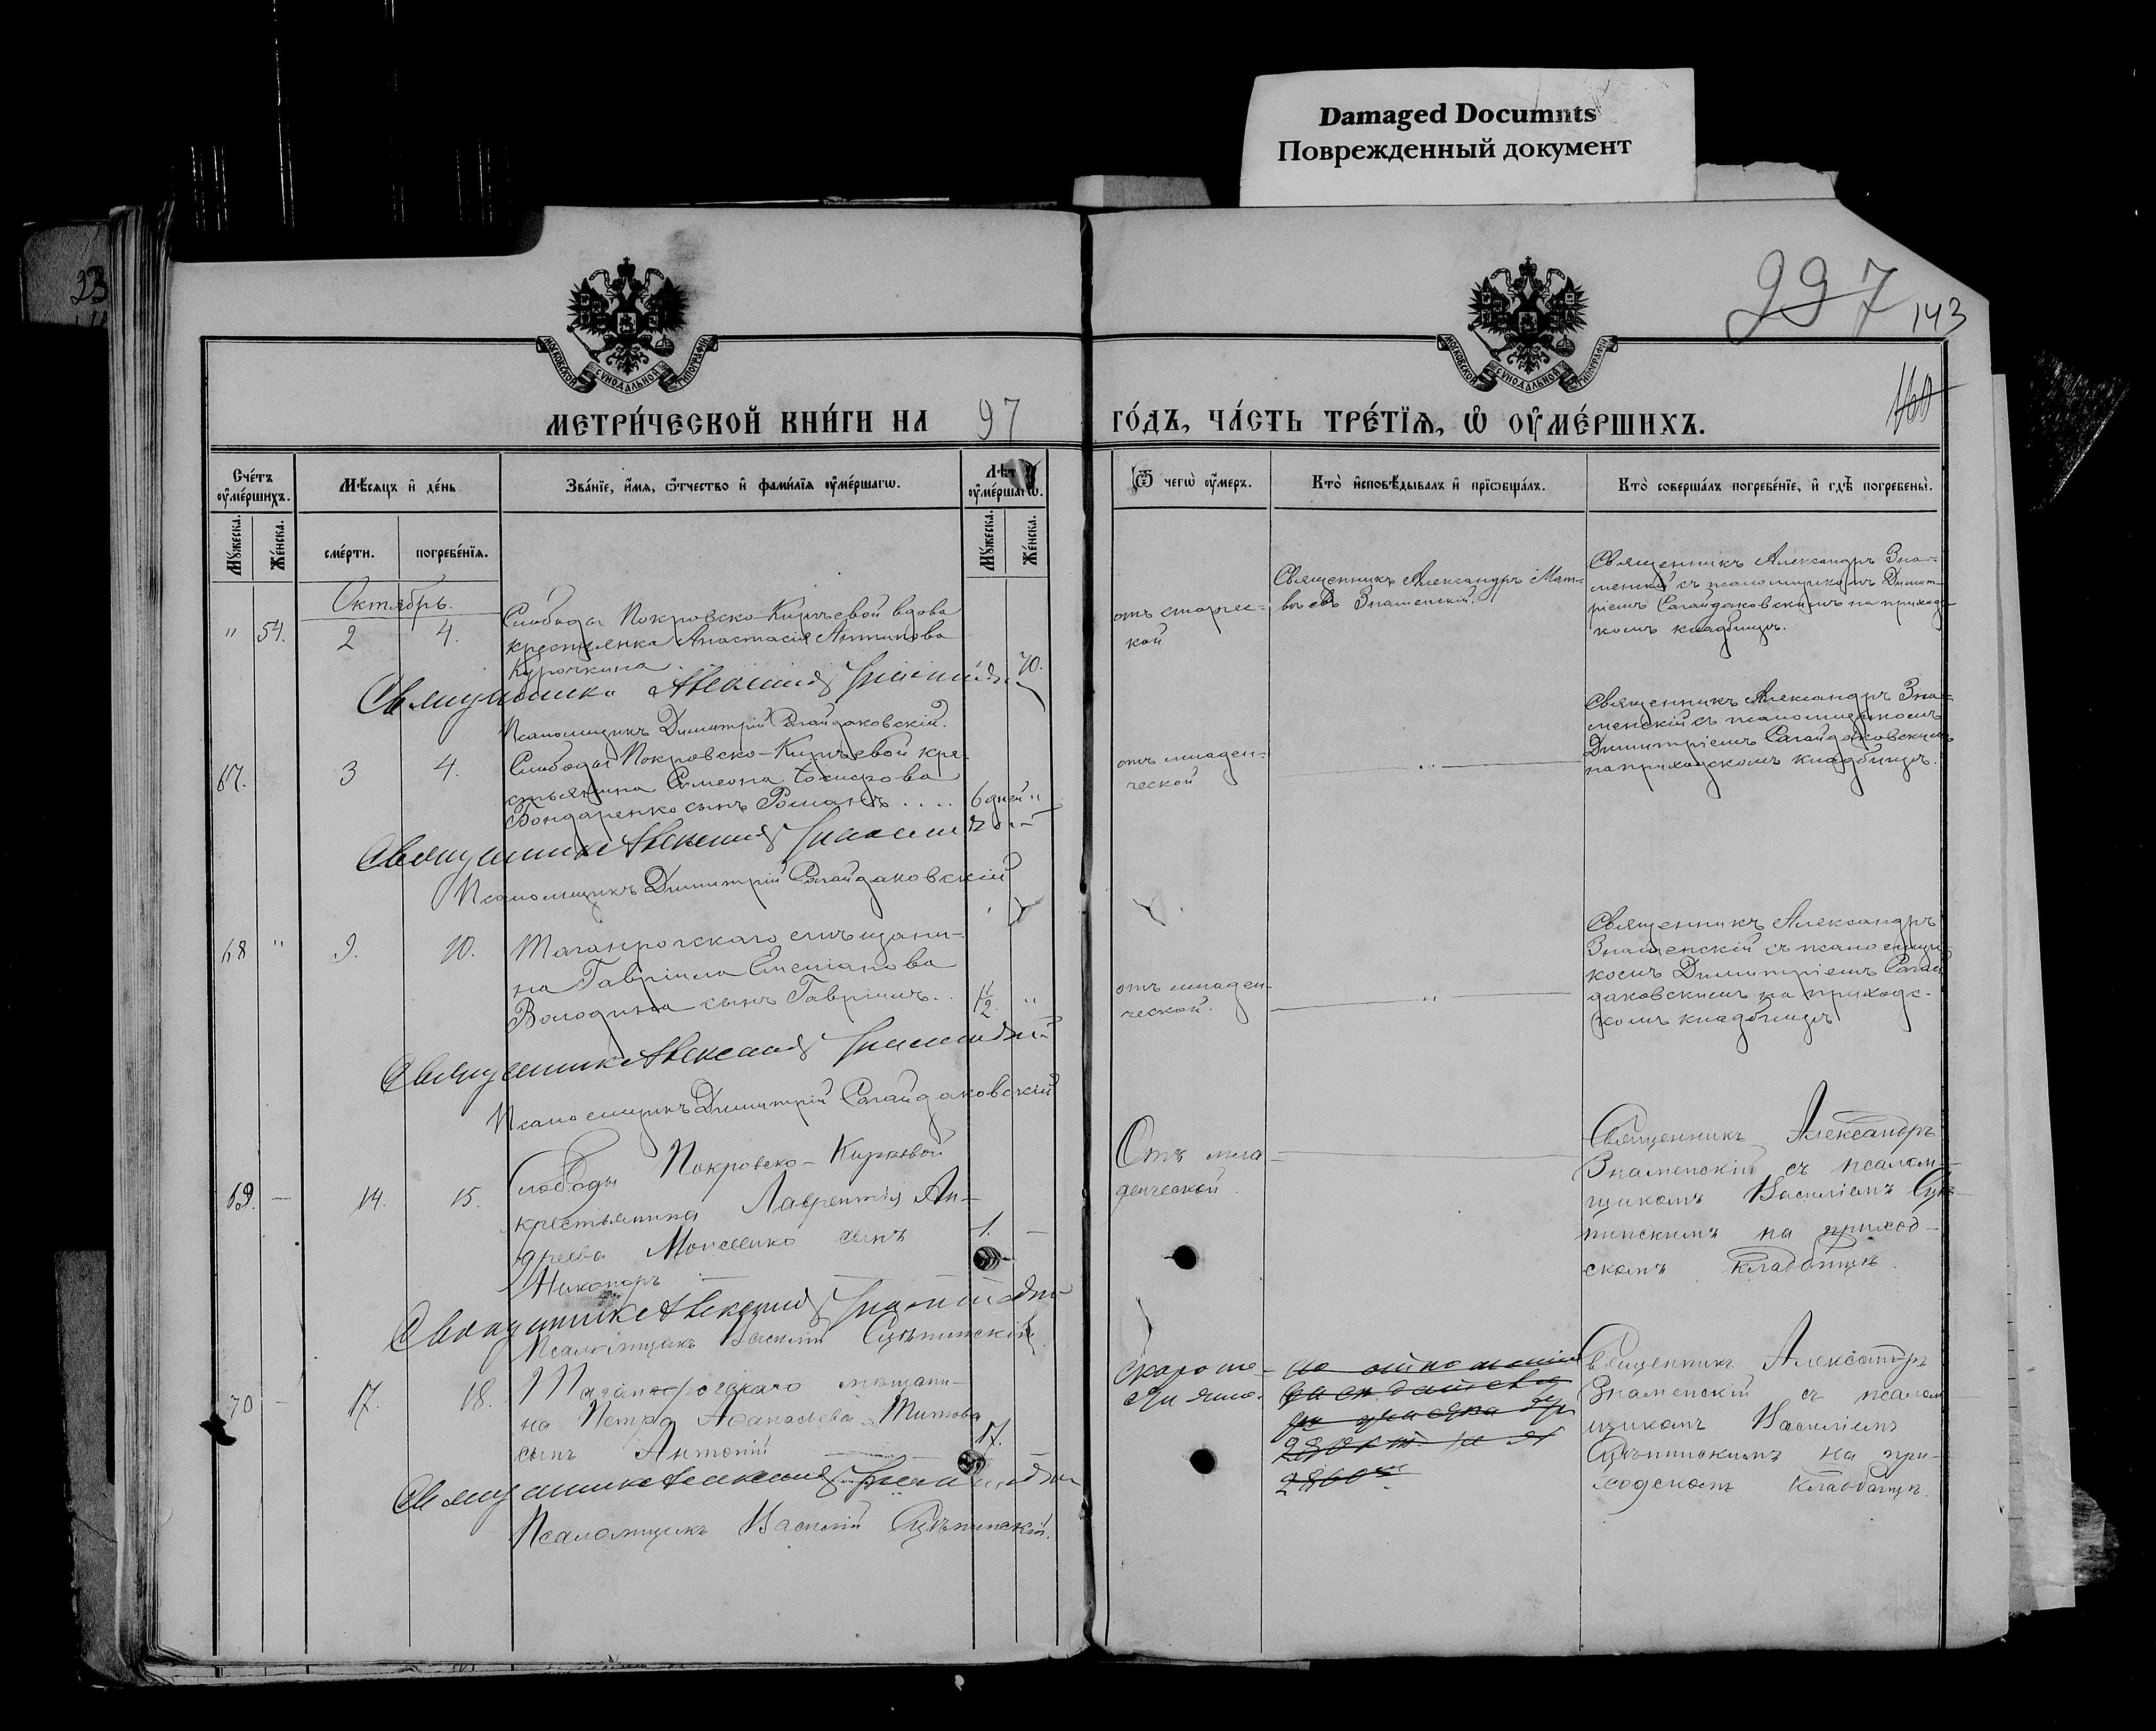 Damaged Documnts
Поврежденный документ
23
997
143
160
МОСКОВСКОЙ СУНОДАЛЬНОЙ ТИПОГРАФІИ
МОСКОВСКОЙ СУНОДАЛЬНОЙ ТИПОГРАФІИ
МЕТРИ́ЧЕСКОЙ КНИ́ГИ НА 97 ГО́ДЪ, ЧА́СТЬ ТРЕ́ТЇѦ, Ѡ҆ ОУ҆МЕ́РШИХЪ.
Сче́тъ оу҆ме́ршихъ.
Мѣ́сяцъ и҆ де́нь
Зва́нїе, и҆́мѧ, ѻ҆́тчество и҆ фами́лїѧ оу҆ме́ршагѡ.
Лѣтъ оу҆ме́ршагѡ.
Ѿ чегѡ̀ оу҆́меръ.
Кто̀ и҆сповѣ́дывалъ и҆ прїѡбща́лъ.
Кто̀ соверша́лъ погребе́нїе, и҆ гдѣ̀ погребены̀.
Мꙋ́жеска.
Же́нска.
сме́рти.
погребе́нїѧ.
Мꙋ́жеска.
Же́нска.
Октябрь.
" 54. 2 4.
Слободы Покровско-Кирѣевой вдова
крестьянка Анастасія Антипова
Курочкина
70.
отъ старчес-
кой
Священникъ Александръ Мат-
вѣевъ Знаменскій.
Священникъ Александръ Зна-
менскій съ псаломщикомъ Димит-
ріемъ Сагайдаковскимъ на приходс-
комъ кладбищѣ.
Священникъ Александръ Знаменскій
Псаломщикъ Димитрій Сагайдаковскій.
67. 3 4.
Слободы Покровско-Кирѣевой кре-
стьянина Симеона
Бондаренко сынъ Романъ . . . . 6 дней "
отъ младен-
ческой
"
Священникъ Александръ Зна-
менскій съ псаломщикомъ
Димитріемъ Сагайдаковскимъ
на приходскомъ кладбищѣ.
Священникъ Александръ Знаменскій
Псаломщикъ Димитрій Сагайдаковскій
68 " 9. 10.
Таганрогскаго мѣщани-
на Гавріила Степанова
Володина сынъ Гавріилъ. . "
отъ младен-
ческой.
"
Священникъ Александръ
Знаменскій съ псаломщи-
комъ Димитріемъ Сагай-
даковскимъ на приходс-
комъ кладбищѣ
Священникъ Александръ Знаменскій
Псаломщикъ Димитрій Сагайдаковскій
69. — 14. 15.
Слободы Покровско-Кирѣевой
крестьянина Лаврентія Ан-
дреева Моисеенко сынъ 1. —
Никаноръ
Отъ мла-
денческой.
Священникъ Александръ
Знаменскій съ псалом-
щикомъ Василіемъ Сцѣ-
пинскимъ на приход-
скомъ кладбищѣ.
Священникъ Александръ Знаменскій
Псаломщикъ Василій Сцѣпинскій
70 — 17. 18.
Таганрогскаго мѣщани-
на Петра Аѳанасьева Титова
сынъ Антоній 17.
Скаропо-
стижно.
по отношенію
Священникъ Александръ
Знаменскій съ псалом-
щикомъ Василіемъ
Сцѣпинскимъ на при-
ходскомъ кладбищѣ.
Священникъ Александръ Знаменскій
Псаломщикъ Василій Сцѣпинскій.